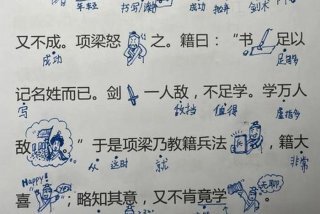 年轻 书写 成功 剑术
又不成。项梁怒之。籍曰："书足以
成功 足够
记名姓而已。剑一人敌，不足学。学万人
写 敌挡 值得 虚指多
敌"于是项梁乃教籍兵法，籍大
从 这时 就 非常
Happy!
喜，略知其意，又不肯竟学